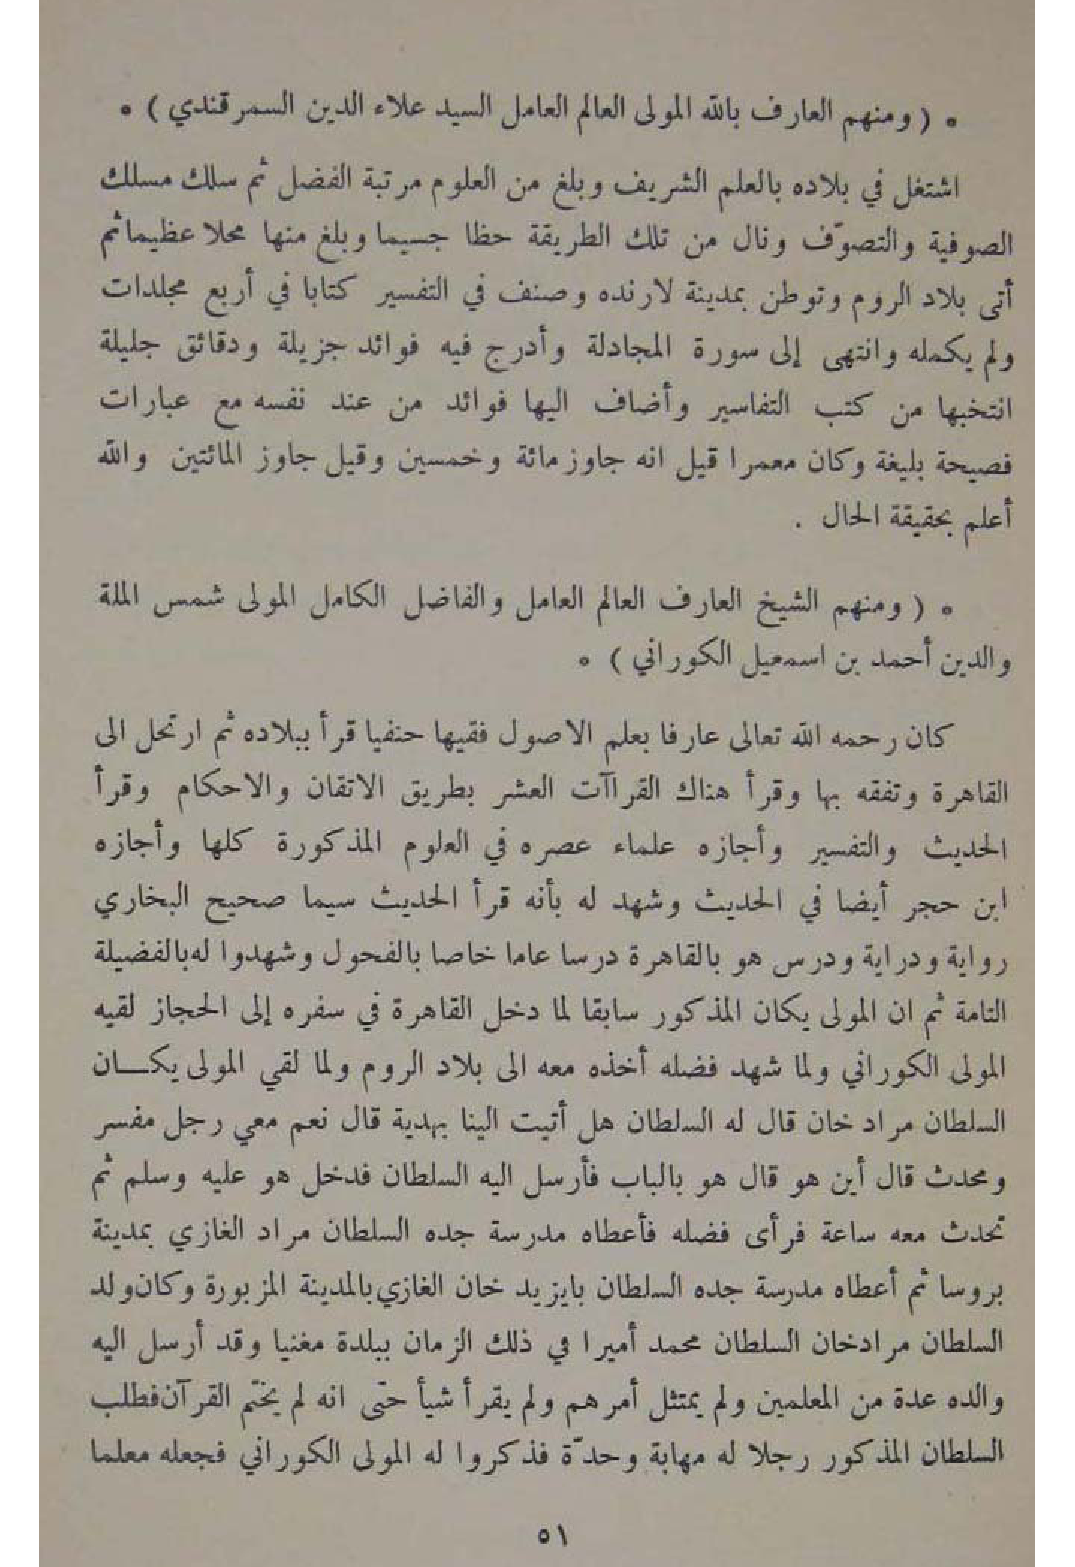 * ( ومنهم العارف بالله المولى العالم العامل السيد علاء الدين السمرقندي ) *
اشتغل في بلاده بالعلم الشريف وبلغ من العلوم مرتبة الفضل ثم سلك مسلك
الصوفية والتصوّف ونال من تلك الطريقة حظا جسيما وبلغ منها محلا عظيما ثم
أتى بلاد الروم وتوطن بمدينة لارنده وصنف في التفسير كتابا في أربع مجلدات
ولم يكمله وانتهى إلى سورة المجادلة وأدرج فيه فوائد جزيلة ودقائق جليلة
انتخبها من كتب التفاسير وأضاف اليها فوائد من عند نفسه مع عبارات
فصيحة بليغة وكان معمرا قيل انه جاوز مائة وخمسين وقيل جاوز المائتين والله
أعلم بحقيقة الحال .
* ( ومنهم الشيخ العارف العالم العامل والفاضل الكامل المولى شمس الملة
والدين أحمد بن اسمعيل الكوراني ) *
كان رحمه الله تعالى عارفا بعلم الاصول فقيها حنفيا قرأ ببلاده ثم ارتحل الى
القاهرة وتفقه بها وقرأ هناك القراآت العشر بطريق الاتقان والاحكام وقرأ
الحديث والتفسير وأجازه علماء عصره في العلوم المذكورة كلها وأجازه
ابن حجر أيضا في الحديث وشهد له بأنه قرأ الحديث سيما صحيح البخاري
رواية ودراية ودرس هو بالقاهرة درسا عاما خاصا بالفحول وشهدوا له بالفضيلة
التامة ثم ان المولى يكان المذكور سابقا لما دخل القاهرة في سفره إلى الحجاز لقيه
المولى الكوراني ولما شهد فضله أخذه معه الى بلاد الروم ولما لقي المولى يكـــان
السلطان مراد خان قال له السلطان هل أتيت الينا بهدية قال نعم معي رجل مفسر
ومحدث قال أين هو قال هو بالباب فأرسل اليه السلطان فدخل هو عليه وسلم ثم
تحدث معه ساعة فرأى فضله فأعطاه مدرسة جده السلطان مراد الغازي بمدينة
بروسا ثم أعطاه مدرسة جده السلطان بايزيد خان الغازي بالمدينة المزبورة وكان ولد
السلطان مرادخان السلطان محمد أميرا في ذلك الزمان ببلدة مغنيا وقد أرسل اليه
والده عدة من المعلمين ولم يمتثل أمرهم ولم يقرأ شيأ حتّى انه لم يختم القرآن فطلب
السلطان المذكور رجلا له مهابة وحدّة فذكروا له المولى الكوراني فجعله معلما
٥١